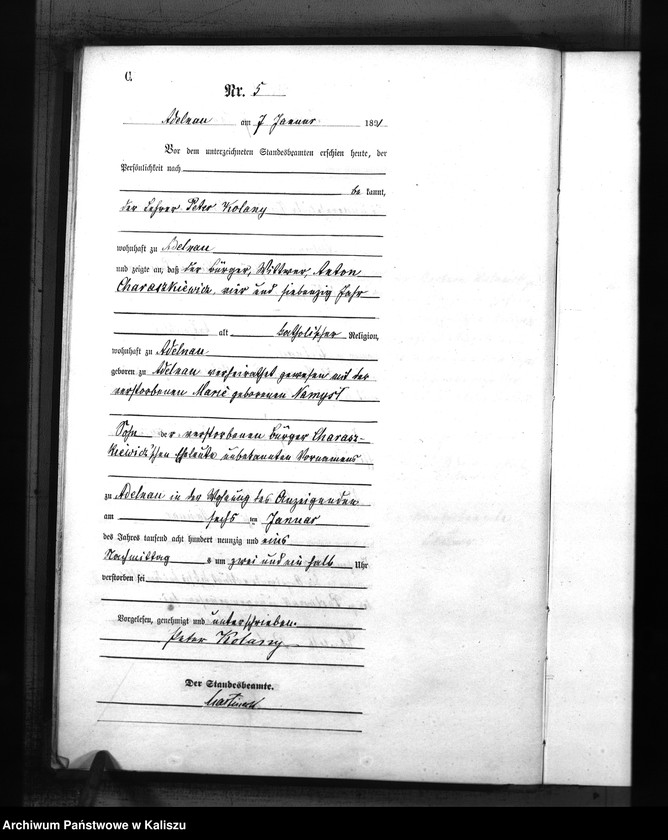 C.
Nr. 5
Adelnau am 7 Januar 1891
Vor dem unterzeichneten Standesbeamten erschien heute, der
Persönlichkeit nach
be kannt,
der Lehrer Peter Kolany
wohnhaft zu Adelnau
und zeigte an, daß der Bürger, Wittwer, Anton
Charaszkiewicz, vier und siebenzig Jahr
alt katholischer Religion,
wohnhaft zu Adelnau
geboren zu Adelnau verheirathet gewesen mit der
verstorbenen Marie geborenen Namysl
Sohn der verstorbenen Bürger Charasz-
kiewicz'schen Eheleute unbekannten Vornamens
zu Adelnau in der Wohnung des Anzeigenden
am sechs ten Januar
des Jahres tausend acht hundert neunzig und eins
Nachmittag s um zwei und ein halb Uhr
verstorben sei
Vorgelesen, genehmigt und unterschrieben.
Peter Kolany
Der Standesbeamte.
Archiwum Państwowe w Kaliszu